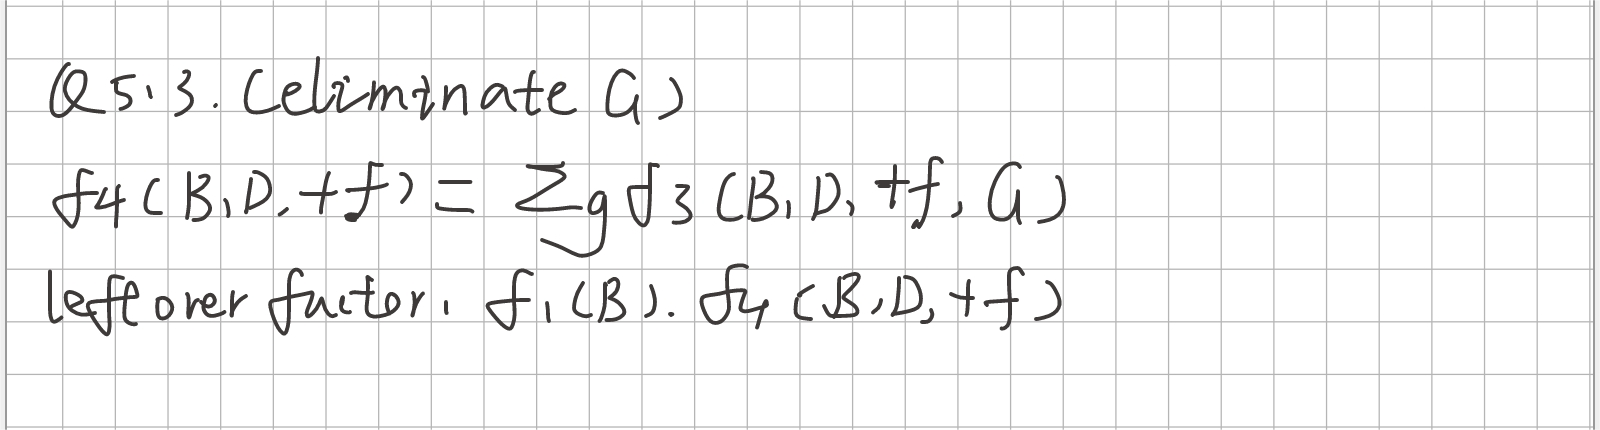 Q5.3. (eliminate G)
f4(B,D,+f) = Σg f3(B,D,+f,G)
leftover factor, f1(B). f4(B,D,+f)